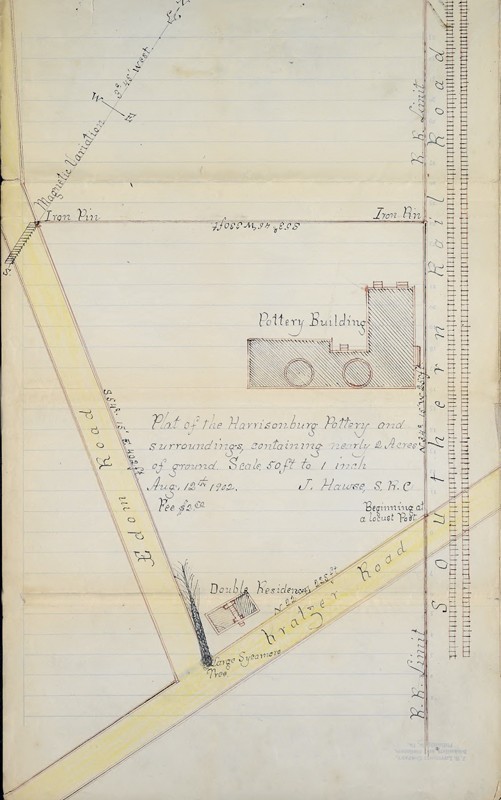 W
E
3° 45' West
Magnetic Variation
S
Iron Pin
Iron Pin
R. R. Limit
Southern Rail Road
Pottery Building
Edom Road
Plat of the Harrisonburg Pottery and
surroundings, containing nearly 2 Acres
of ground. Scale, 50 ft to 1 inch
Aug. 12th 1902. J. Hawse, S. R. C
Fee $2.50
Beginning at
a locust Post
Double Residence
Kratzer Road
Large Sycamore
Tree
R. R. Limit